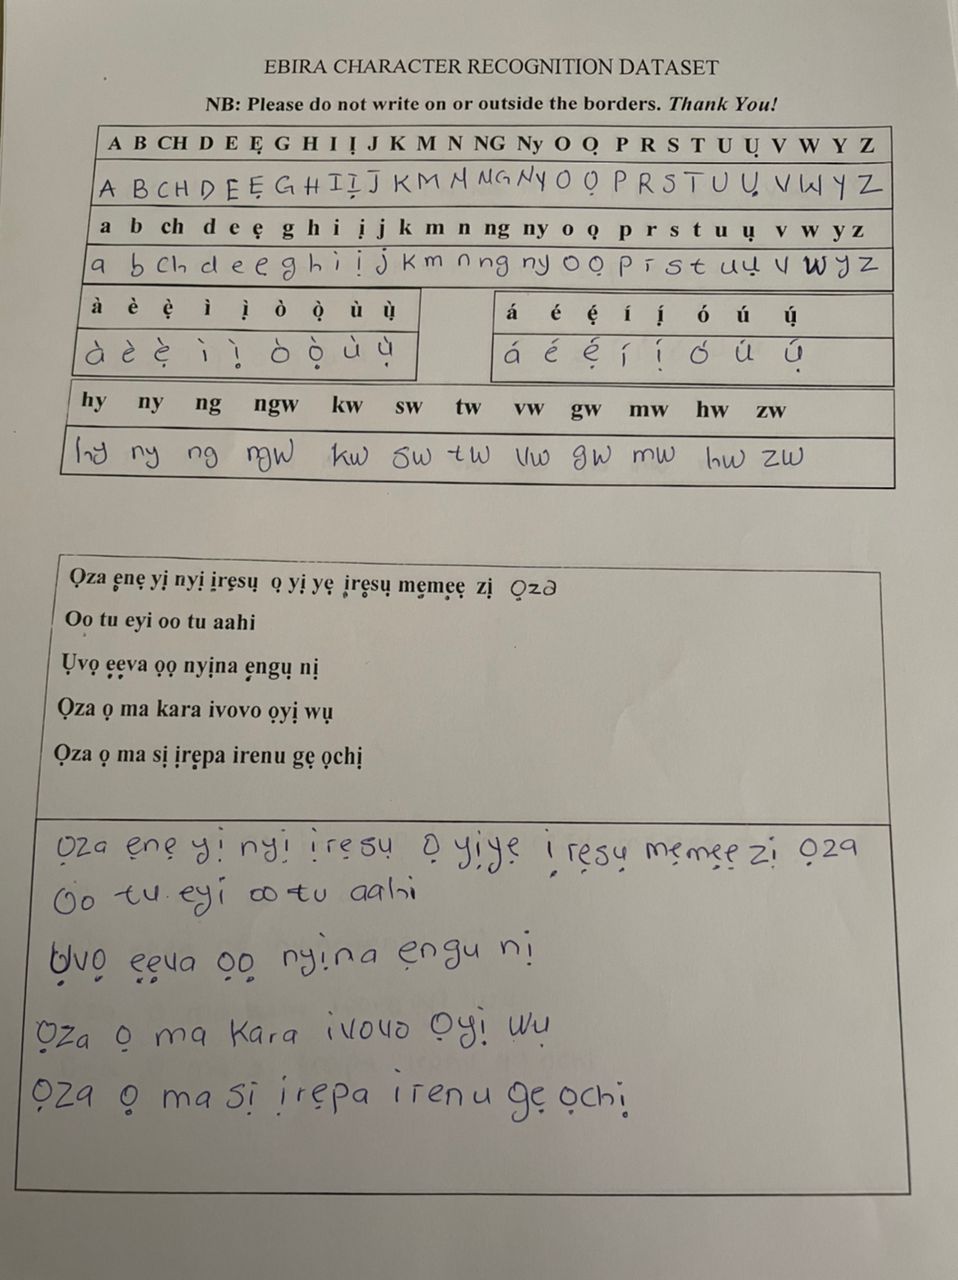 EBIRA CHARACTER RECOGNITION DATASET
NB: Please do not write on or outside the borders. Thank You!
A B CH D E Ẹ G H I Ị J K M N NG Ny O Ọ P R S T U Ụ V W Y Z
A B CH D E Ẹ G H I Ị J K M N NG Ny O Ọ P R S T U Ụ V W Y Z
a b ch d e ẹ g h i ị j k m n ng ny o ọ p r s t u ụ v w y z
a b ch d e ẹ g h i ị j k m n ng ny o ọ p r s t u ụ v w y z
à è ẹ̀ ì ị̀ ò ọ̀ ù ụ̀
à è ẹ̀ ì ị̀ ò ọ̀ ù ụ̀
á é ẹ́ í ị́ ó ú ụ́
á é ẹ́ í ị́ ó ú ụ́
hy ny ng ngw kw sw tw vw gw mw hw zw
hy ny ng ngw kw sw tw vw gw mw hw zw
Ọza ẹnẹ yị nyị ịrẹsụ ọ yị yẹ ịrẹsụ mẹmẹẹ zị ọza
Oo tu eyi oo tu aahi
Ụvọ ẹẹva ọọ nyịna ẹngụ nị
Ọza ọ ma kara ivovo ọyị wụ
Ọza ọ ma sị ịrẹpa irenu gẹ ọchị
Ọza ẹnẹ yị nyị ịrẹsụ ọ yịyẹ ịrẹsụ mẹmẹẹ zị ọza
Oo tu eyi oo tu aahi
Ụvọ ẹẹva ọọ nyịna ẹngu nị
Ọza ọ ma kara ivovo ọyị wụ
Ọza ọ ma sị ịrẹpa irenu gẹ ọchị